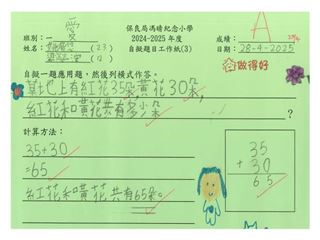 愛
保良局馮晴紀念小學
班別：一
成績：
A
2024-2025年度
姓名：
(23)
自擬題目工作紙(3)
日期：28-4-2025
做得好
自擬一題應用題，然後列橫式作答。
草地上有紅花35朵,黃花30朵,
紅花和黃花共有多少朵
?
計算方法：
35+30
=65
紅花和黃花共有65朵。
35
+ 30
65